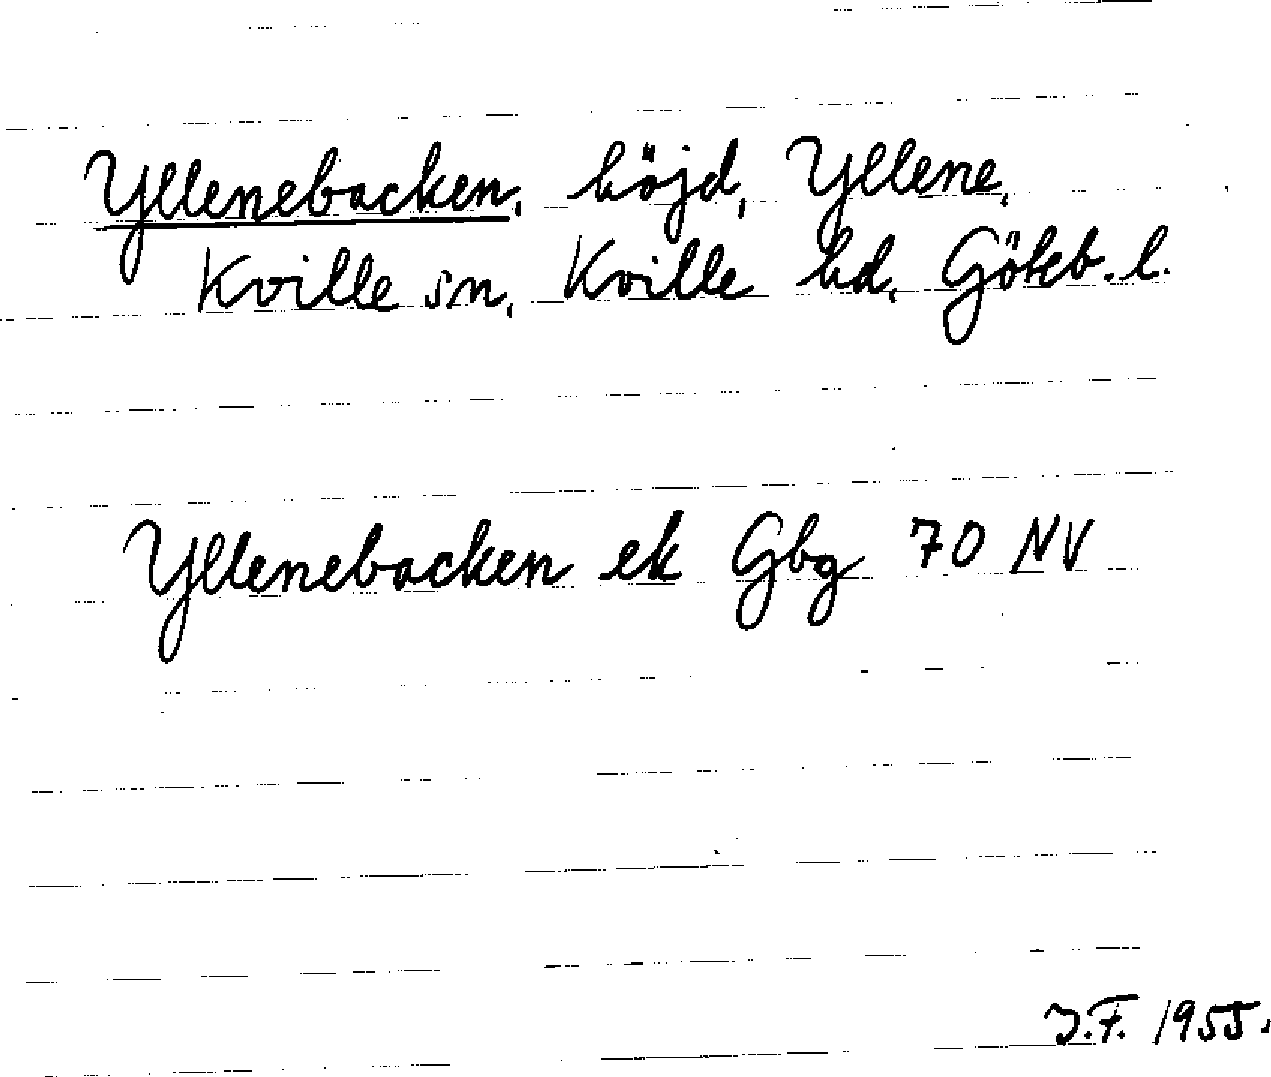 Yllenebacken, höjd, Yllene,
Kville sn, Kville hd, Götcb. l.
Yllenebacken ek Gbg 70 NV
J.F. 1955.